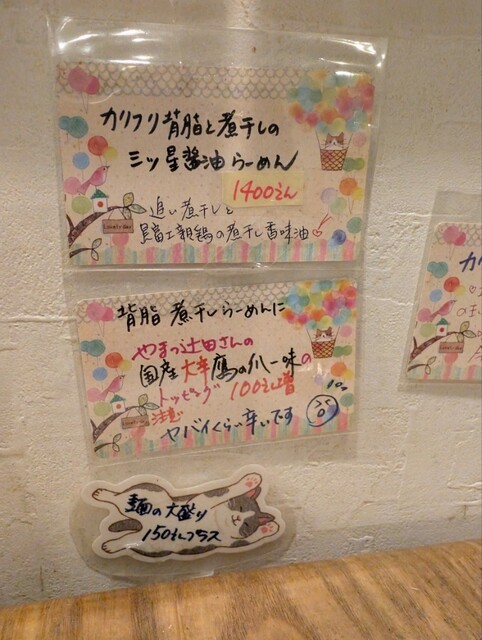 カリフリ背脂と煮干しの
三ッ星醤油らーめん
1400えん
追い煮干しと
親鶏の煮干し香味油
Lovely Day
背脂煮干しらーめんに
やまつ辻田さんの
国産大辛鷹の爪一味の
トッピング 100えん増
注意
ヤバイくらい辛いです
Lovely Day
麺の大盛り
150えんプラス